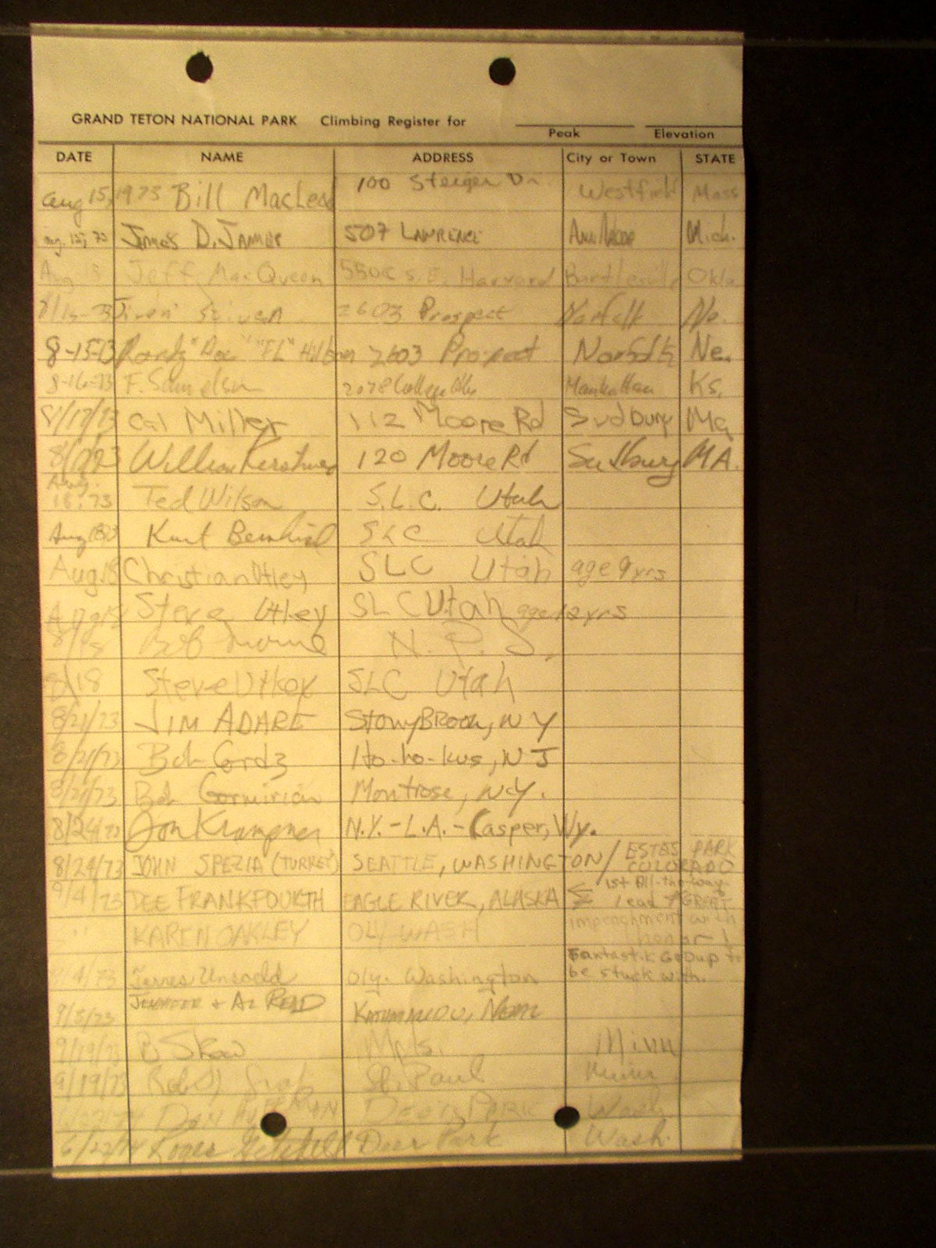 GRAND TETON NATIONAL PARK Climbing Register for
Peak Elevation
DATE NAME ADDRESS City or Town STATE
Aug 15, 1973 Bill MacLeod 100 Steiger Dr. Westfield Mass
Aug. 15, 73 James D. James 507 LAWRENCE Ann Arbor Mich.
Aug 15 Jeff MacQueen S.E. Harvard Bartlesville Okla
2603 Prospect Norfolk Ne.
8-15-73 "Doc" 2603 Prospect Norfolk Ne.
8-16-73 F. Samelson 2078 College Manhattan Ks.
8/17/73 Cal Miller 112 Moore Rd Sudbury Ma
8/17/73 William Kershner 120 Moore Rd Sudbury MA.
Aug. 18, 73 Ted Wilson S.L.C. Utah
Aug 18 73 Kurt SLC Utah
Aug 18 Christian Utley SLC Utah age 9 yrs
Aug 18 Steve Utley SLC Utah age 12 yrs
8/18 Bob N.P.S.
8/18 Steve SLC Utah
8/21/73 JIM ADARE Stony Brook, NY
8/21/73 Bob Ho-ho-kus, NJ
8/21/73 Bob Montrose, N.Y.
8/24/73 Jon Krampner N.Y.-L.A.-Casper, Wy.
8/24/73 JOHN SPEZIA (TURKEY) SEATTLE, WASHINGTON / ESTES PARK COLORADO
9/4/73 DEE FRANKFOURTH EAGLE RIVER, ALASKA ← 1st All-the-way lead GREAT
" KAREN OAKLEY OLY WASH impeachment with honor!
9/4/73 Terres Unsoeld Oly. Washington Fantastik Group to be stuck with.
9/5/73 JENNIFER + AL READ KATHMANDU, NEPAL
9/19/73 B Mpls. Minn
9/19/73 Rob St. Paul Minn
6/22/74 DAN HUFFMAN DEER PARK Wash
6/22/74 Roger Deer Park Wash.